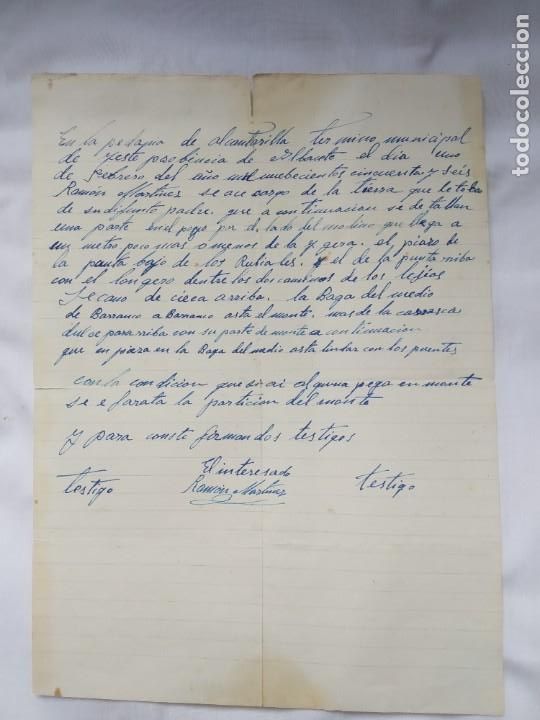 En la pedanía de alcantarilla termino municipal
de yeste probincia de Albacete el dia uno
de Febrero del año mil nuebecientos cincuenta y séis
Ramón Martinez se ace cargo de la tierra que le toba
de su difunto padre. que a continuacion se detallan
una parte en el poyo por de lado del molino que llega a
un metro poco mas o menos de la ygera. el piazo de
la punta bajo de los Rubiales. y el de la punta riba
con el longero dentre los dos caminos de los tejios
Secano de cieca arriba. la Baga del medio
de Barranco a Barranco asta el monte. mas de la carrasca
dulce para riba con su parte de monte a continuacion
que en pieza en la Baga del medio asta lindar con los puentes
con la condicion que si ai alguna pega en monte
se e farata la particion del monte
y para conste firman dos testigos
El interesado
testigo Ramón Martinez testigo
todocoleccion